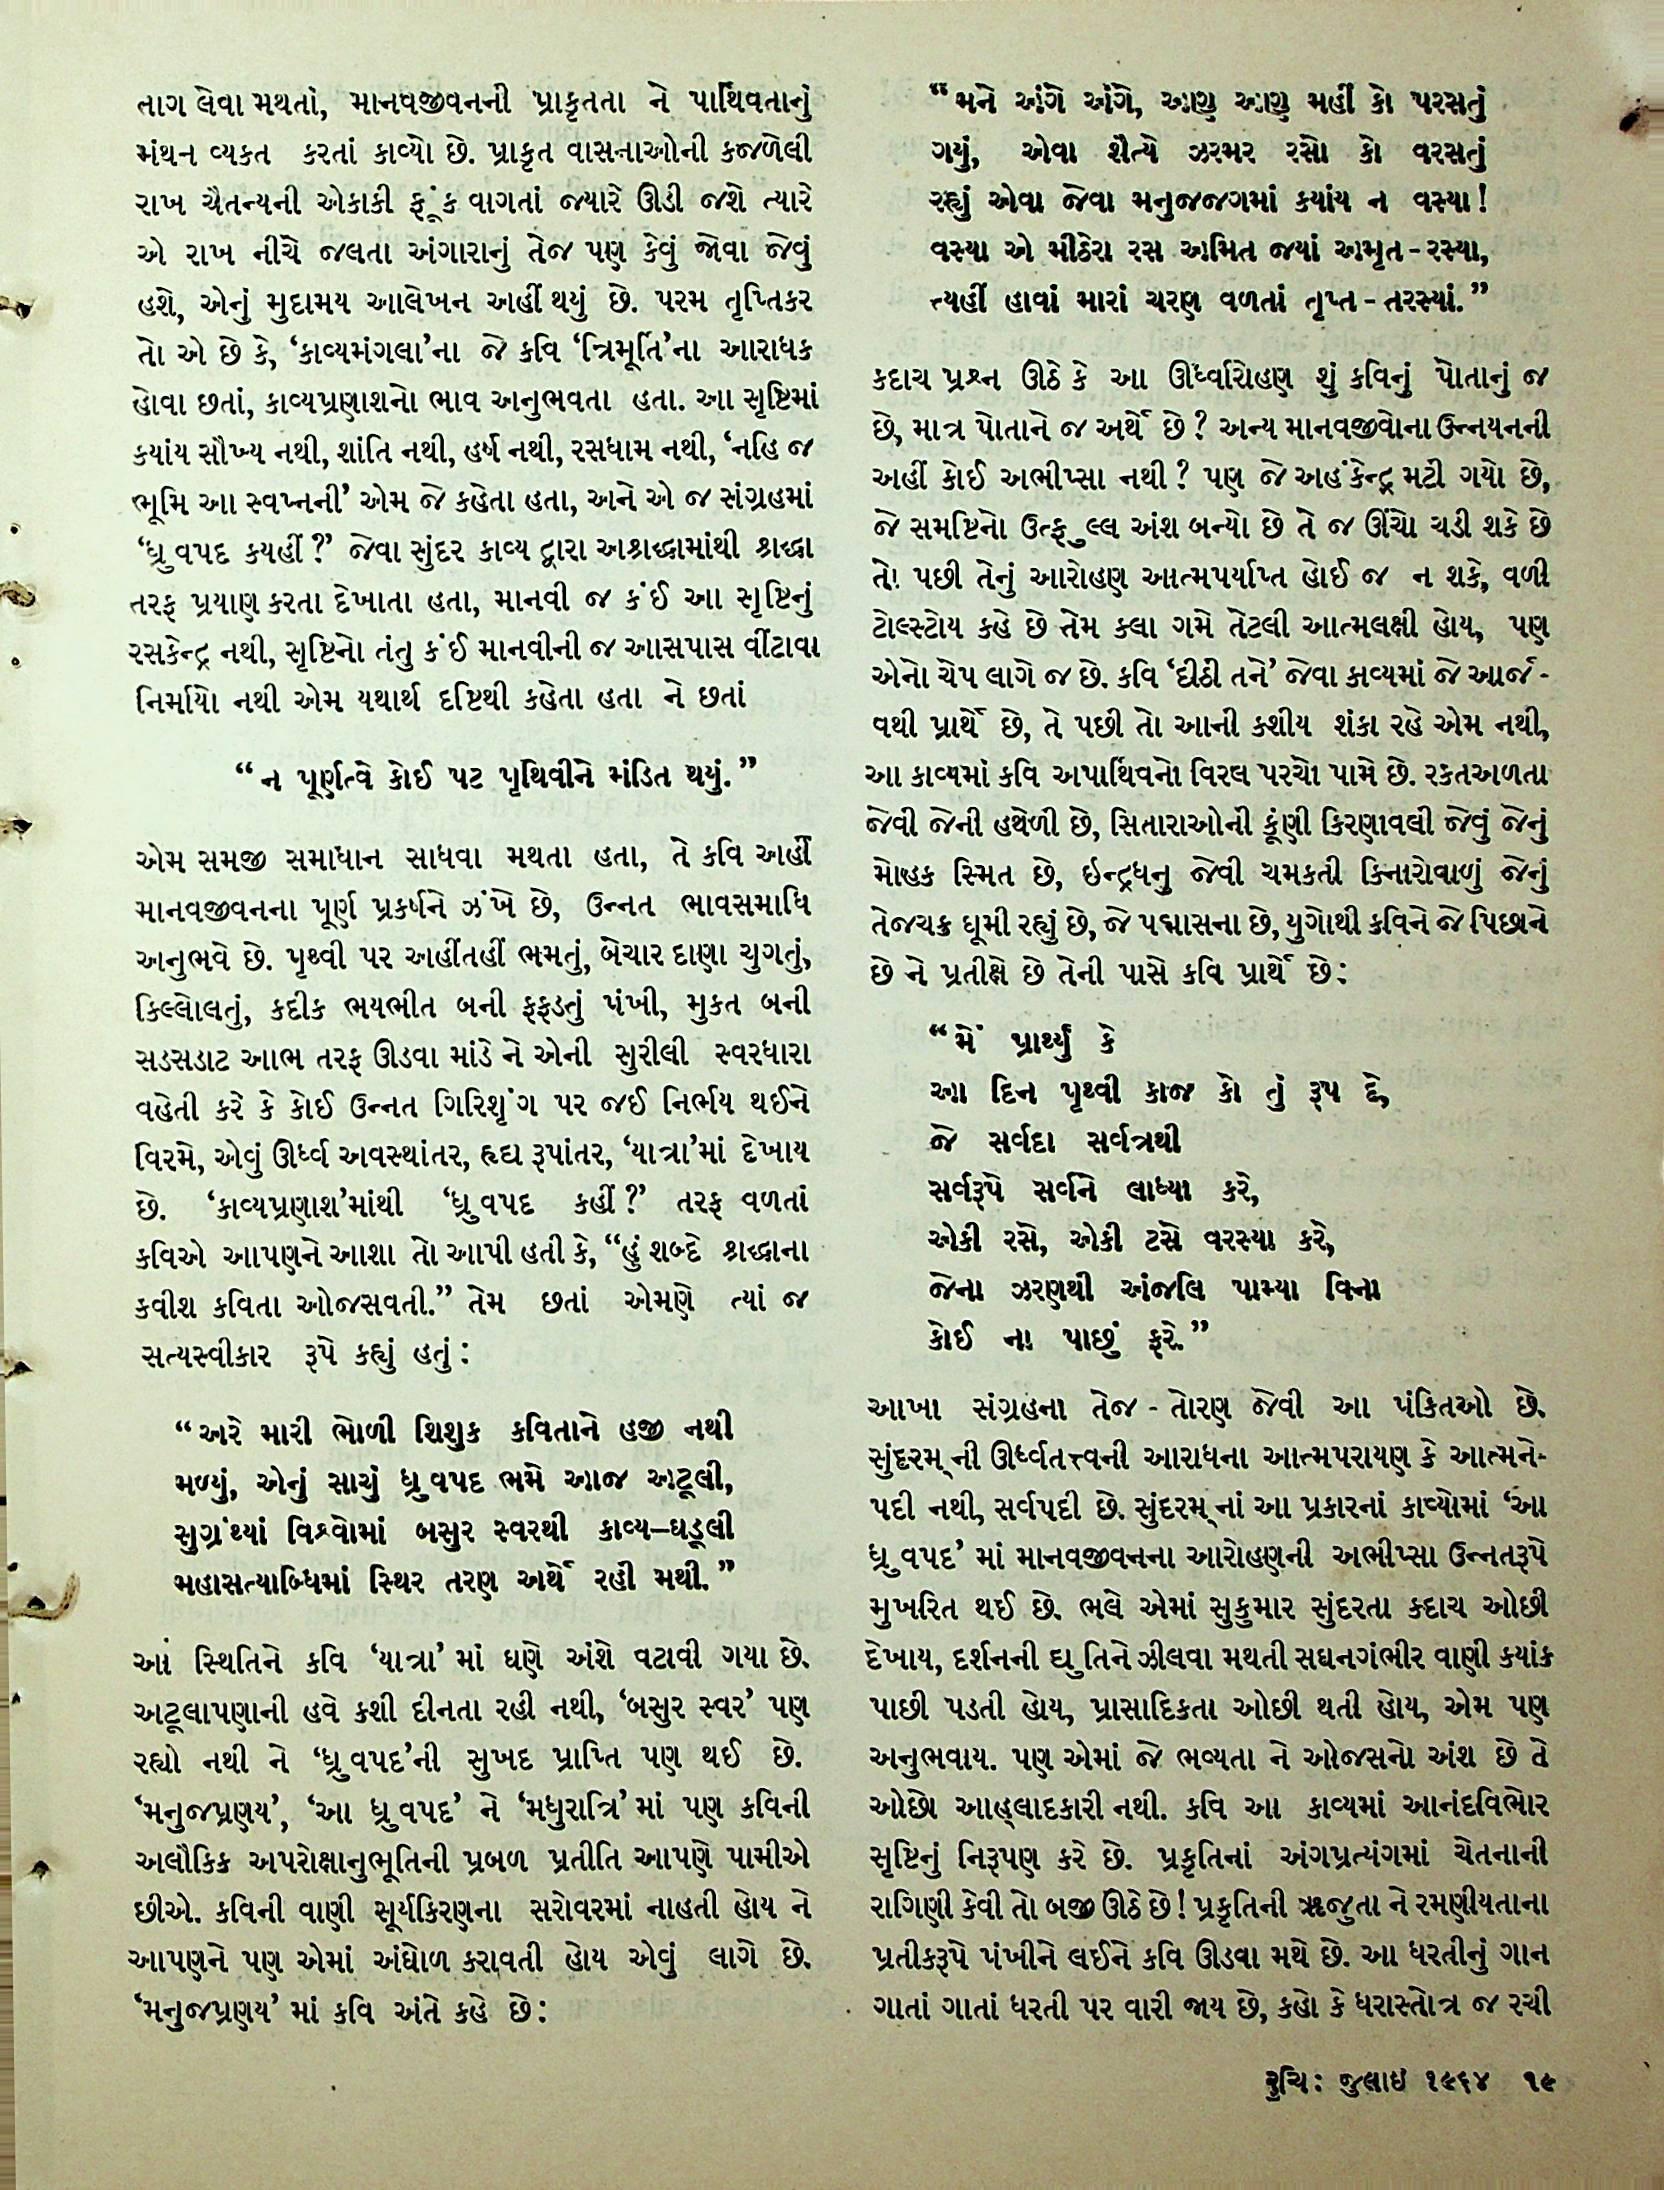 તાગ લેવા મથતાં, માનવજીવનની પ્રાકૃતતા ને પાર્થિવતાનું
મંથન વ્યકત કરતાં કાવ્યો છે. પ્રાકૃત વાસનાઓની કજળેલી
રાખ ચૈતન્યની એકાકી ફૂંક વાગતાં જ્યારે ઊડી જશે ત્યારે
એ રાખ નીચે જલતા અંગારાનું તેજ પણ કેવું જોવા જેવું
હશે, એનું મુદામય આલેખન અહીં થયું છે. પરમ તૃપ્તિકર
તો એ છે કે, ‘કાવ્યમંગલા’ના જે કવિ ‘ત્રિમૂર્તિ’ના આરાધક
હોવા છતાં, કાવ્યપ્રણાશનો ભાવ અનુભવતા હતા. આ સૃષ્ટિમાં
કયાંય સૌખ્ય નથી, શાંતિ નથી, હર્ષ નથી, રસધામ નથી, ‘નહિ જ
ભૂમિ આ સ્વપ્નની’ એમ જે કહેતા હતા, અને એ જ સંગ્રહમાં
‘ધ્રુવપદ કયહીં?’ જેવા સુંદર કાવ્ય દ્વારા અશ્રદ્ધામાંથી શ્રદ્ધા
તરફ પ્રયાણ કરતા દેખાતા હતા, માનવી જ કંઈ આ સૃષ્ટિનું
રસકેન્દ્ર નથી, સૃષ્ટિનો તંતુ કંઈ માનવીની જ આસપાસ વીંટાવા
નિર્માયો નથી એમ યથાર્થ દષ્ટિથી કહેતા હતા ને છતાં
“ન પૂર્ણત્વે કોઈ પટ પૃથિવીને મંડિત થયું.”
એમ સમજી સમાધાન સાધવા મથતા હતા, તે કવિ અહીં
માનવજીવનના પૂર્ણ પ્રકર્ષને ઝંખે છે, ઉન્નત ભાવસમાધિ
અનુભવે છે. પૃથ્વી પર અહીંતહીં ભમતું, બેચાર દાણા ચુગતું,
કિલ્લોલતું, કદીક ભયભીત બની ફફડતું પંખી, મુકત બની
સડસડાટ આભ તરફ ઊડવા માંડે ને એની સુરીલી સ્વરધારા
વહેતી કરે કે કોઈ ઉન્નત ગિરિશૃંગ પર જઈ નિર્ભય થઈને
વિરમે, એવું ઊર્ધ્વ અવસ્થાંતર, હૃદ્ય રૂપાંતર, ‘યાત્રા’માં દેખાય
છે. ‘કાવ્યપ્રણાશ’માંથી ‘ધ્રુવપદ કહીં?’ તરફ વળતાં
કવિએ આપણને આશા તો આપી હતી કે, “હું શબ્દે શ્રદ્ધાના
કવીશ કવિતા ઓજસવતી.” તેમ છતાં એમણે ત્યાં જ
સત્યસ્વીકાર રૂપે કહ્યું હતું:
“અરે મારી ભોળી શિશુક કવિતાને હજી નથી
મળ્યું, એનું સાચું ધ્રુવપદ ભમે આજ અટૂલી,
સુગ્રંથ્યાં વિશ્વોમાં બસુર સ્વરથી કાવ્ય–ઘડૂલી
મહાસત્યાબ્ધિમાં સ્થિર તરણ અર્થે રહી મથી.”
આ સ્થિતિને કવિ ‘યાત્રા’ માં ઘણે અંશે વટાવી ગયા છે.
અટૂલાપણાની હવે કશી દીનતા રહી નથી, ‘બસુર સ્વર’ પણ
રહ્યો નથી ને ‘ધ્રુવપદ’ની સુખદ પ્રાપ્તિ પણ થઈ છે.
‘મનુજપ્રણય’, ‘આ ધ્રુવપદ’ ને ‘મધુરાત્રિ’ માં પણ કવિની
અલૌકિક અપરોક્ષાનુભૂતિની પ્રબળ પ્રતીતિ આપણે પામીએ
છીએ. કવિની વાણી સૂર્યકિરણના સરોવરમાં નાહતી હોય ને
આપણને પણ એમાં અંઘોળ કરાવતી હોય એવું લાગે છે.
‘મનુજપ્રણય’ માં કવિ અંતે કહે છે:
“મને અંગે અંગે, અણુ અણુ મહીં કો પરસતું
ગયું, એવા શૈત્યે ઝરમર રસો કો વરસતું
રહ્યું એવા જેવા મનુજજગમાં કયાંય ન વસ્યા!
વસ્યા એ મીઠેરા રસ અમિત જ્યાં અમૃત-રસ્યા,
ત્યહીં હાવાં મારાં ચરણ વળતાં તૃપ્ત-તરસ્યાં.”
કદાચ પ્રશ્ન ઊઠે કે આ ઊર્ધ્વારોહણ શું કવિનું પોતાનું જ
છે, માત્ર પોતાને જ અર્થે છે? અન્ય માનવજીવોના ઉન્નયનની
અહીં કોઈ અભીપ્સા નથી? પણ જે અહંકેન્દ્ર મટી ગયો છે,
જે સમષ્ટિનો ઉત્ફુલ્લ અંશ બન્યો છે તે જ ઊંચો ચડી શકે છે
તો પછી તેનું આરોહણ આત્મપર્યાપ્ત હોઈ જ ન શકે, વળી
ટોલ્સ્ટોય કહે છે તેમ કલા ગમે તેટલી આત્મલક્ષી હોય, પણ
એનો ચેપ લાગે જ છે. કવિ ‘દીઠી તને’ જેવા કાવ્યમાં જે આર્જ-
વથી પ્રાર્થે છે, તે પછી તો આની કશીય શંકા રહે એમ નથી,
આ કાવ્યમાં કવિ અપાર્થિવનો વિરલ પરચો પામે છે. રકતઅળતા
જેવી જેની હથેળી છે, સિતારાઓની કૂંણી કિરણાવલી જેવું જેનું
મોહક સ્મિત છે, ઇન્દ્રધનુ જેવી ચમકતી કિનારોવાળું જેનું
તેજચક્ર ઘૂમી રહ્યું છે, જે પદ્માસના છે, યુગોથી કવિને જે પિછાને
છે ને પ્રતીક્ષે છે તેની પાસે કવિ પ્રાર્થે છે:
“મેં પ્રાર્થ્યું કે
આ દિન પૃથ્વી કાજ કો તું રૂપ દે,
જે સર્વદા સર્વત્રથી
સર્વરૂપે સર્વને લાધ્યા કરે,
એકી રસે, એકી ટસે વરસ્યા કરે,
જેના ઝરણથી અંજલિ પામ્યા વિના
કોઈ ના પાછું ફરે.”
આખા સંગ્રહના તેજ-તોરણ જેવી આ પંકિતઓ છે.
સુંદરમ્ ની ઊર્ધ્વતત્ત્વની આરાધના આત્મપરાયણ કે આત્મને-
પદી નથી, સર્વપદી છે. સુંદરમ્ નાં આ પ્રકારનાં કાવ્યોમાં ‘આ
ધ્રુવપદ’ માં માનવજીવનના આરોહણની અભીપ્સા ઉન્નતરૂપે
મુખરિત થઈ છે. ભલે એમાં સુકુમાર સુંદરતા કદાચ ઓછી
દેખાય, દર્શનની દ્યુતિને ઝીલવા મથતી સઘનગંભીર વાણી કયાંક
પાછી પડતી હોય, પ્રાસાદિકતા ઓછી થતી હોય, એમ પણ
અનુભવાય. પણ એમાં જે ભવ્યતા ને ઓજસનો અંશ છે તે
ઓછો આહ્‌લાદકારી નથી. કવિ આ કાવ્યમાં આનંદવિભોર
સૃષ્ટિનું નિરૂપણ કરે છે. પ્રકૃતિનાં અંગપ્રત્યંગમાં ચેતનાની
રાગિણી કેવી તો બજી ઊઠે છે! પ્રકૃતિની ઋજુતા ને રમણીયતાના
પ્રતીકરૂપે પંખીને લઈને કવિ ઊડવા મથે છે. આ ધરતીનું ગાન
ગાતાં ગાતાં ધરતી પર વારી જાય છે, કહો કે ધરાસ્તોત્ર જ રચી
રુચિ: જુલાઇ ૧૯૬૪ ૧૯